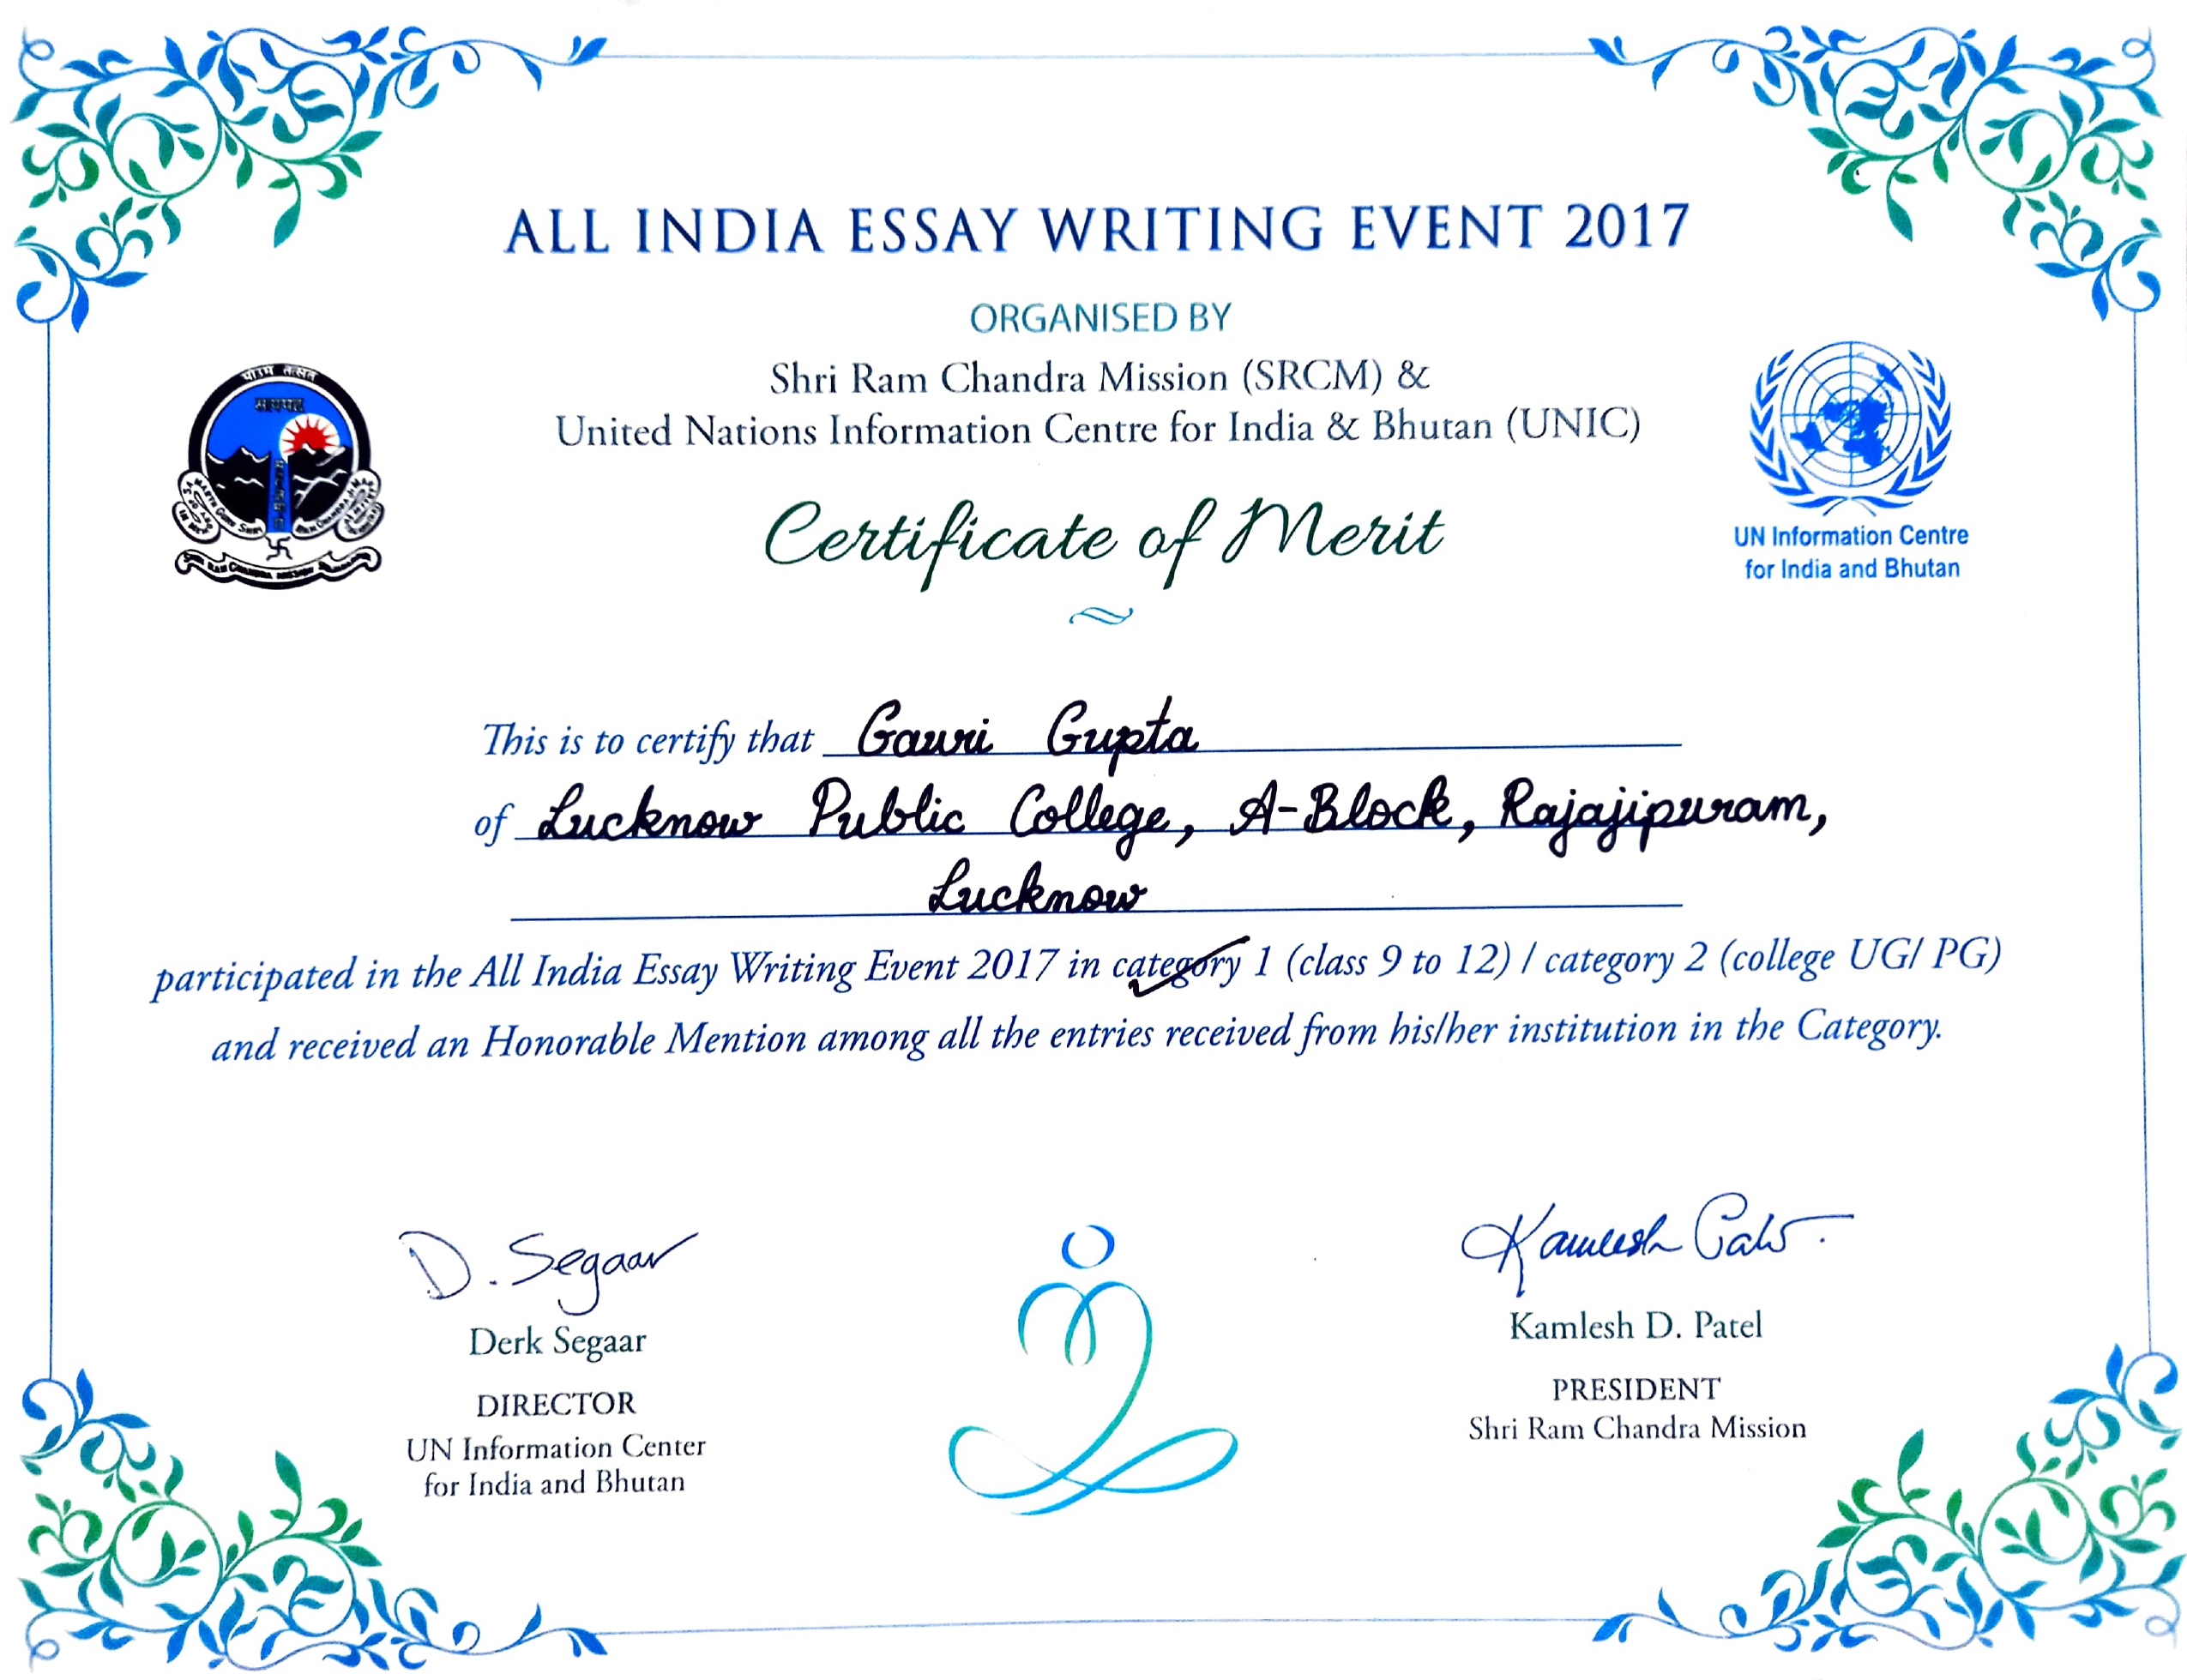 ALL INDIA ESSAY WRITING EVENT 2017
ORGANISED BY
Shri Ram Chandra Mission (SRCM) &
United Nations Information Centre for India & Bhutan (UNIC)
UN Information Centre
for India and Bhutan
Certificate of Merit
This is to certify that Gauri Gupta
of Lucknow Public College, A-Block, Rajajipuram,
Lucknow
participated in the All India Essay Writing Event 2017 in category 1 (class 9 to 12) / category 2 (college UG/ PG)
and received an Honorable Mention among all the entries received from his/her institution in the Category.
D. Segaar
Derk Segaar
DIRECTOR
UN Information Center
for India and Bhutan
Kamlesh
Kamlesh D. Patel
PRESIDENT
Shri Ram Chandra Mission